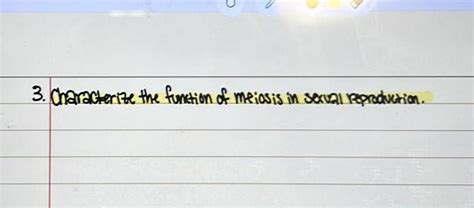 3. Characterize the function of meiosis in sexual reproduction.